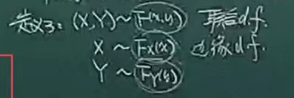 定义3: (X,Y)~F(x,y) 联合d.f.
X ~ Fx(x) 边缘d.f.
Y ~ Fy(y)